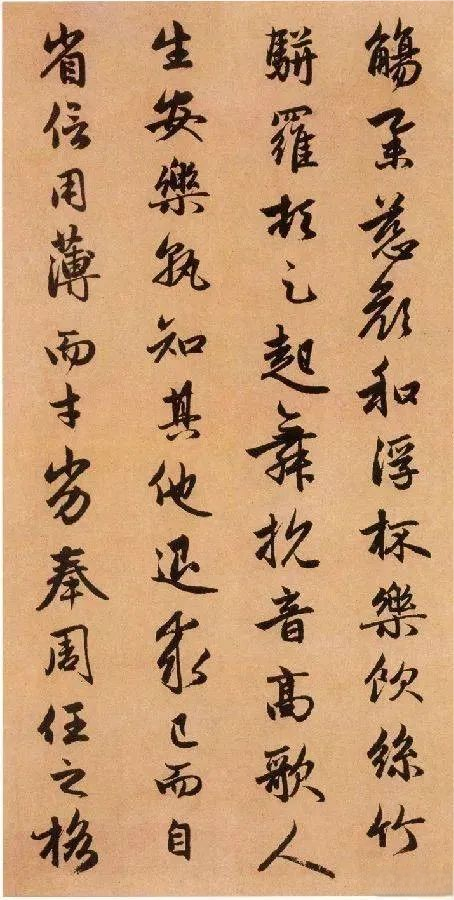 觴舉慈顔和浮杯樂飲絲竹
駢羅頓足起舞抗音高歌人
生安樂孰知其他退求己而自
省信用薄而才劣奉周任之格